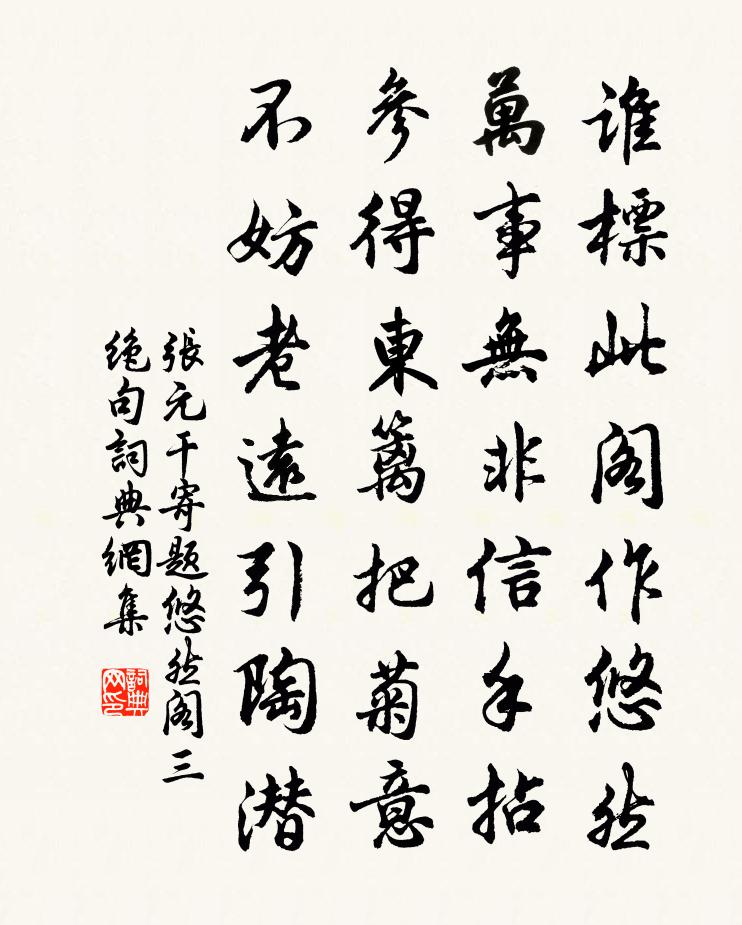 誰標此阁作悠然
萬事無非信手拈
參得東籬把菊意
不妨老遠引陶潜
張元干寄题悠然阁三
絶句詞典網集
詞典
网印